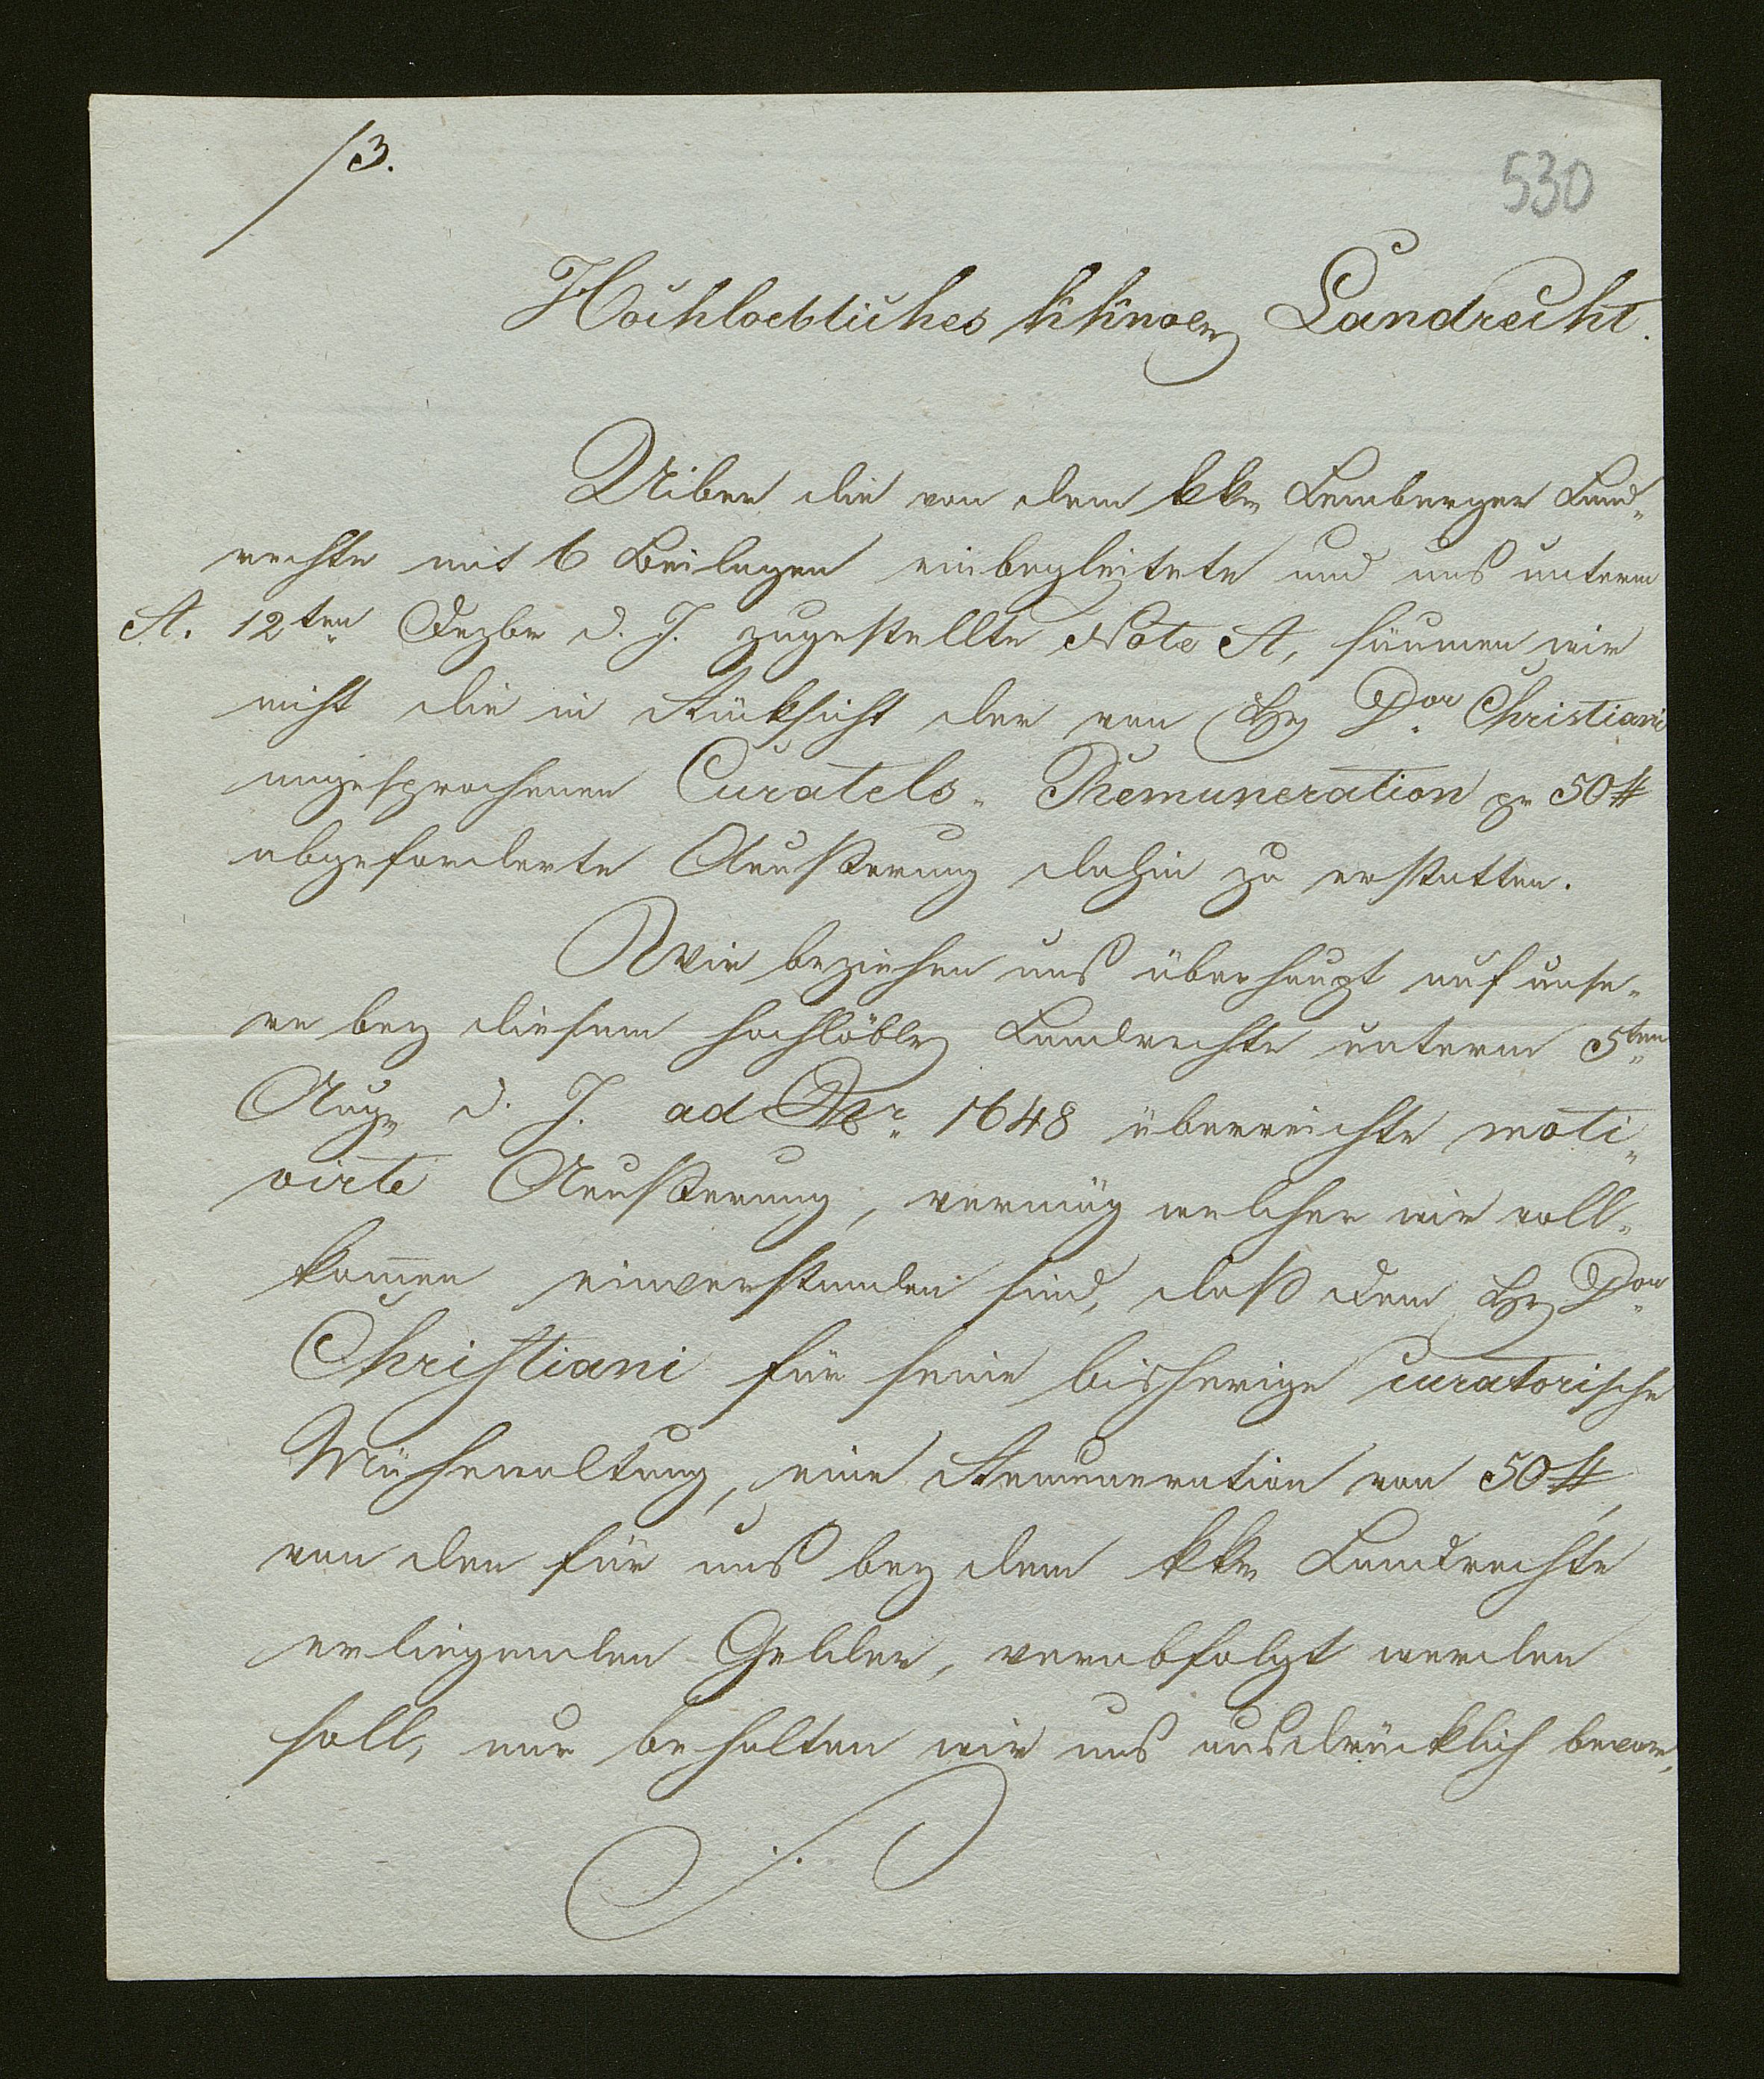 /3.
530
Hochloebliches kk Landrecht.
Uiber die von dem kk. Lemberger Land„
rechte mit 6 Beilagen einbegleitete und uns unterm
A. 12ten Dezbr d. J. zugestellte Note A, säumen wir
nicht die in Rücksicht der von H Dor Christiani
angesprochenen Curatels„ Remuneration pr 50#
abgeforderte Aeußerung dahin zu erstatten.
Wir beziehen uns überhaupt auf unse„
re bey diesem hochlöbl Landrechte unterm 5ten
Aug. d. J. ad Nr. 1648 überreichte moti„
virte Aeußerung, vermög welcher wir voll„
kom̄en einverstanden sind, daß dem H Dor
Christiani für seine bisherige curatorische
Mühewaltung, eine Remuneration von 50#,
von den für uns bey dem kk. Landrechte
erliegenden Gelder, verabfolgt werden
soll, nur behalten wir uns ausdrücklich bevor,
./.